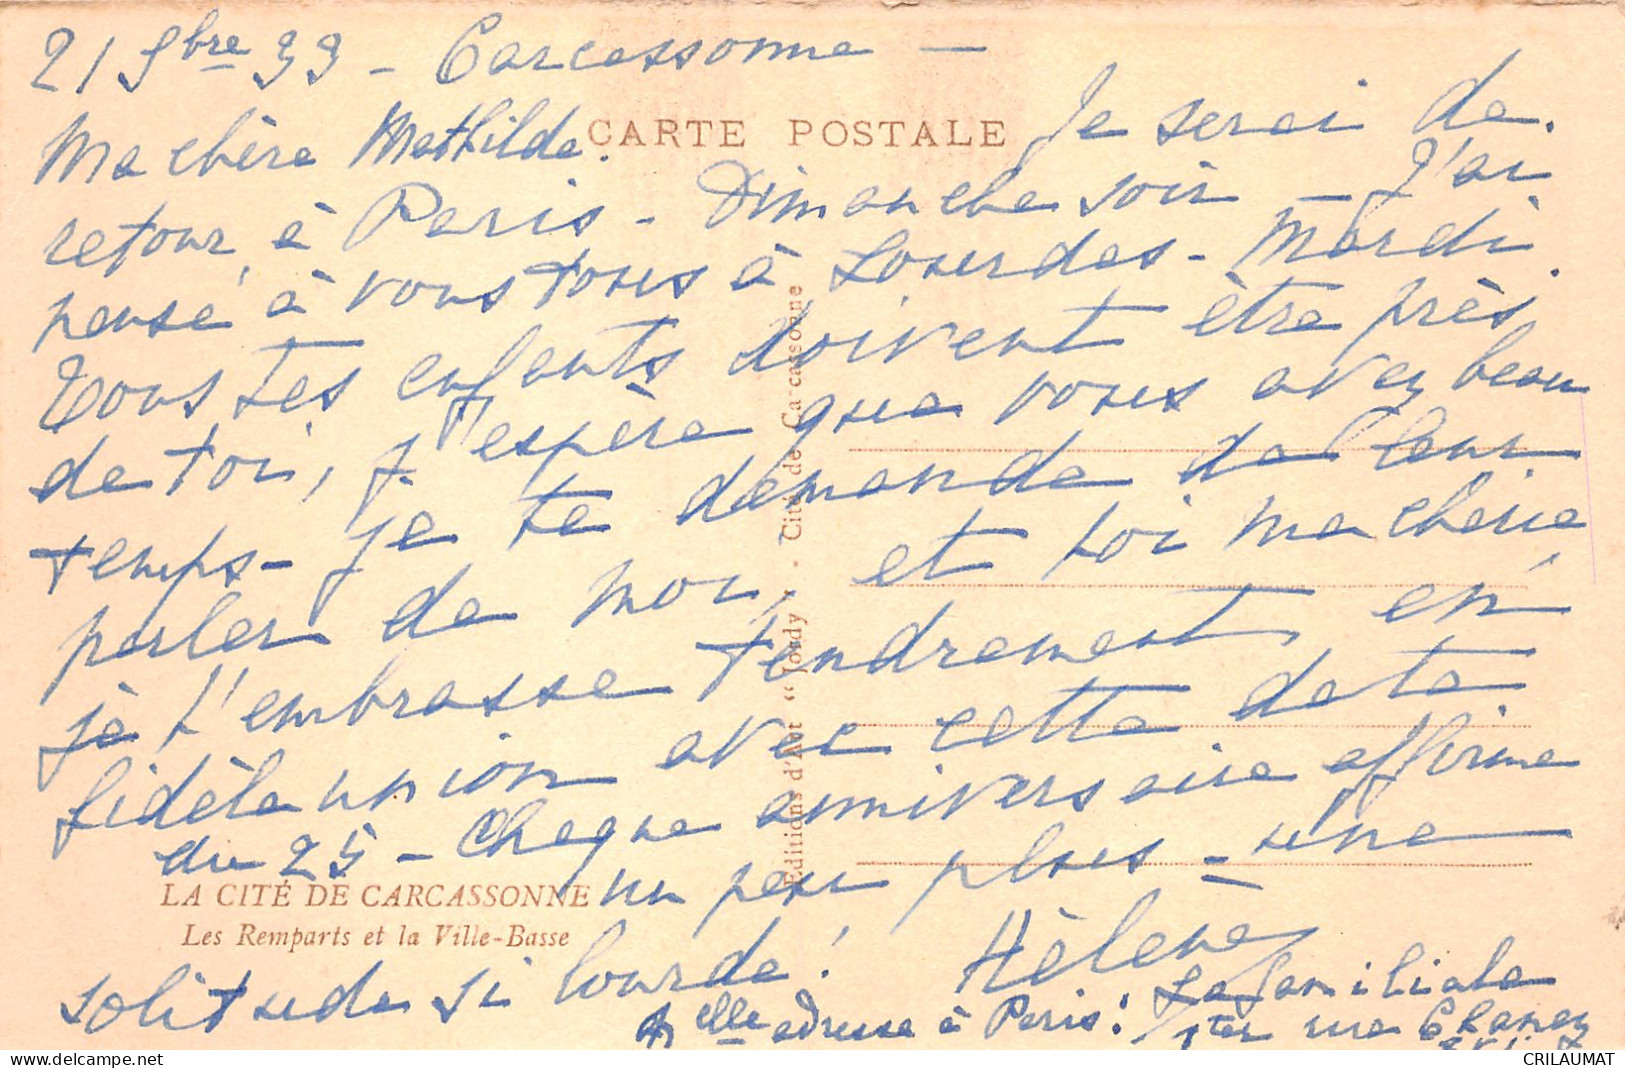 21 9bre 33 - Carcassonne -
CARTE POSTALE
Ma chère Mathilde. Je serai de
retour à Paris - Dimanche soir - J'ai
pensé à vous tous à Lourdes - Mardi.
Tous tes enfants doivent être près
de toi, j'espère que vous avez beau
temps - je te demande de leur
parler de moi, et toi ma chérie
je t'embrasse tendrement, en
fidèle union avec cette date
du 25 - Chaque anniversaire affirme
un peu plus - une
solitude si lourde ! Hélène
Nelle adresse à Paris : La familiale
1ter rue
LA CITÉ DE CARCASSONNE
Les Remparts et la Ville-Basse
Editions d'Art “ Jordy ” - Cité de Carcassonne
CRILAUMAT